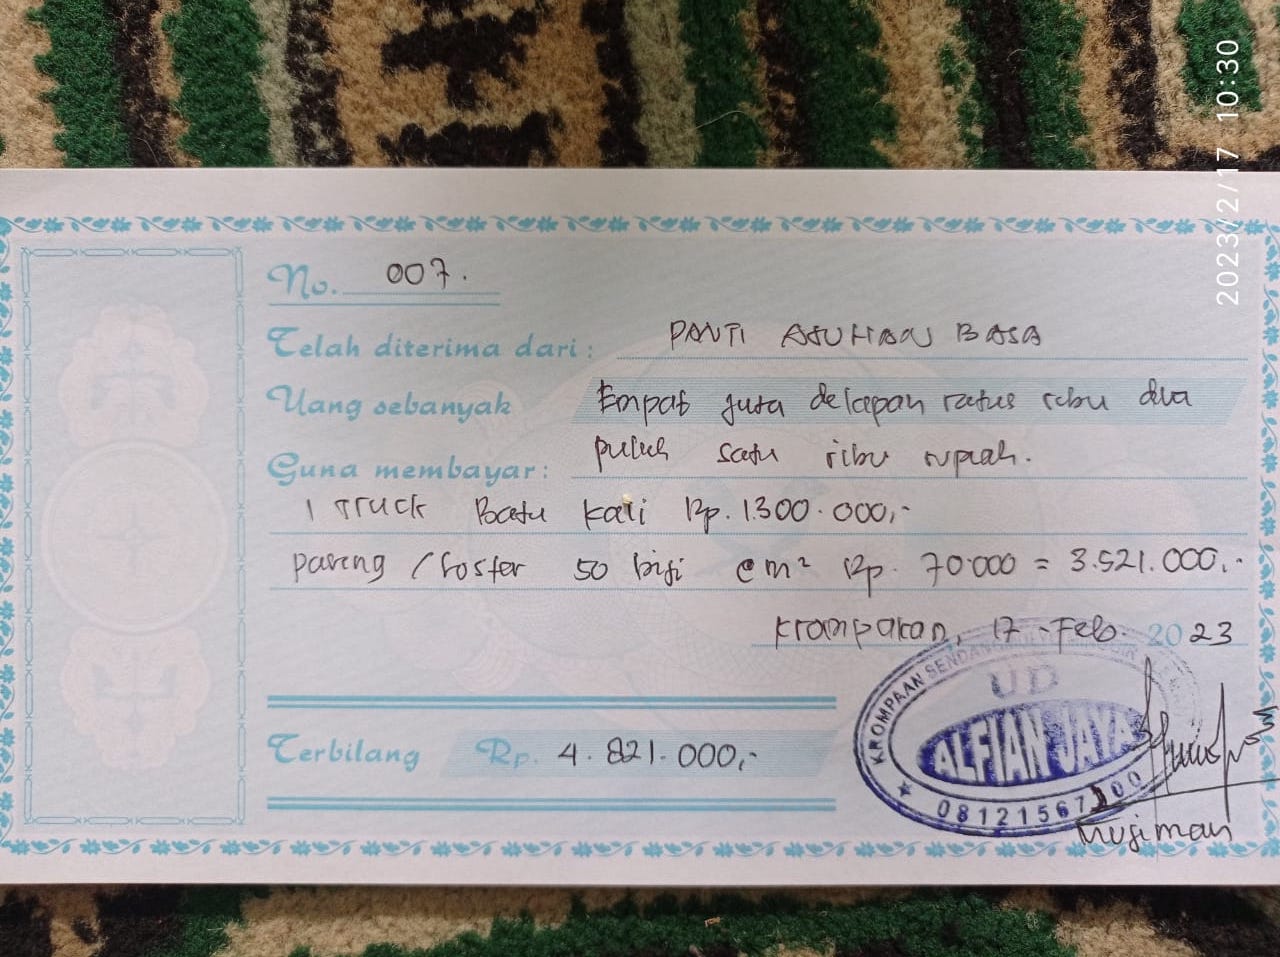 2023/2/17 10:30
No. 007.
Telah diterima dari : PANTI ASUHAN BASA
Uang sebanyak Empat juta delapan ratus ribu dua
puluh satu ribu rupiah.
Guna membayar :
1 Truck Batu kali Rp. 1.300.000,-
paving / roster 50 biji @ m² Rp. 70.000 = 3.521.000,-
Krompakan, 17 - Feb - 2023
KROMPAAN
UD
ALFIAN JAYA
Terbilang Rp. 4.821.000,-
Mujiman